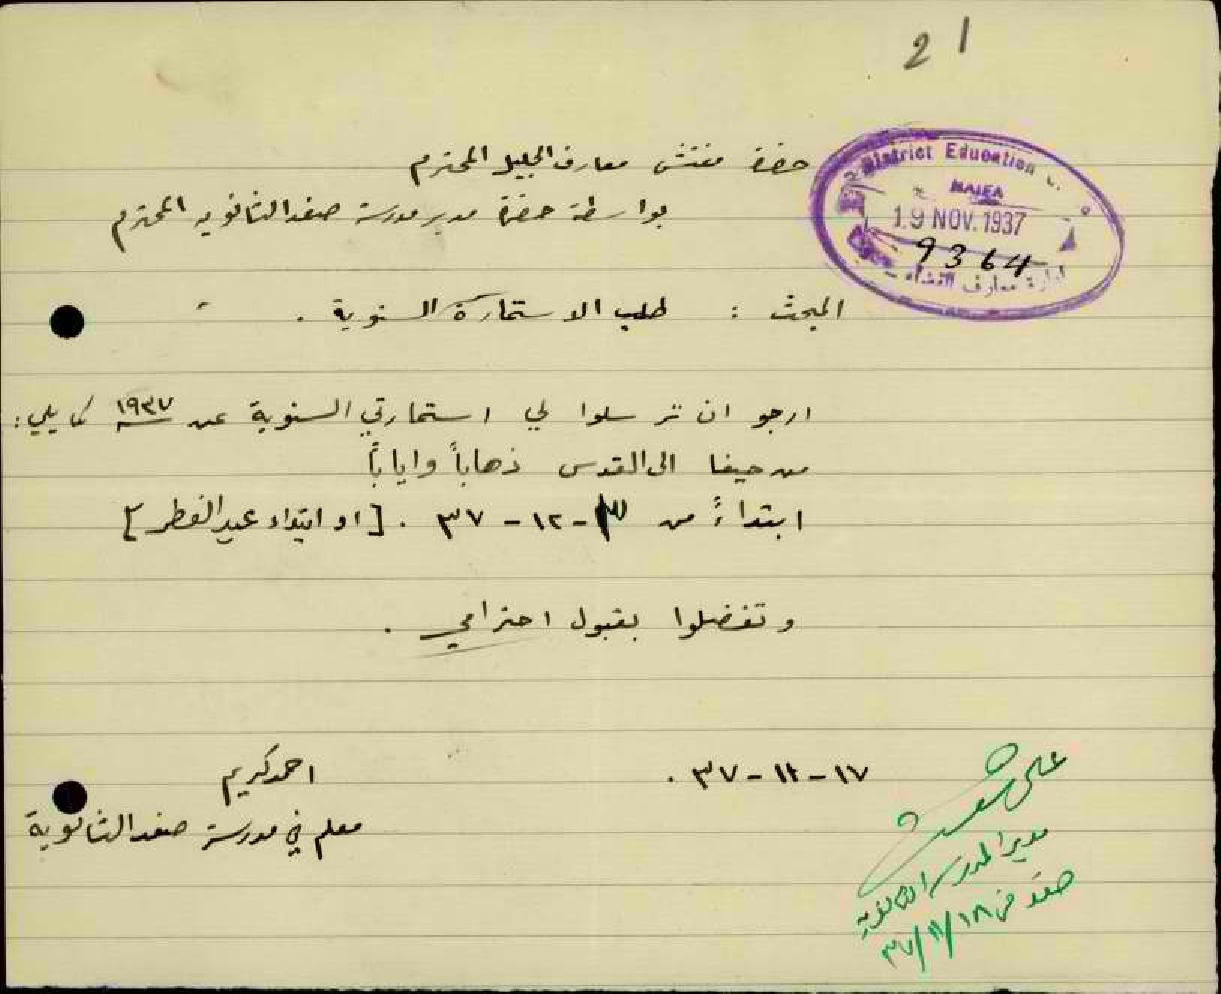 21
District Education
HAIFA
19 NOV. 1937
9364
ادارة معارف القضاء
حضرة مفتش معارف الجليل المحترم
بواسطة حضرة مدير مدرسة صفد الثانوية المحترم
المبحث : طلب الاستمارة السنوية .
ارجو ان ترسلوا لي استمارتي السنوية عن سنة ١٩٣٧ كما يلي :
من حيفا الى القدس ذهاباً واياباً
ابتداءً من -١٢-٣٧ . [او ابتداء عيد الفطر]
وتفضلوا بقبول احترامي .
١٧-١١-٣٧ .
احمد كريم
معلم في مدرسة صفد الثانوية
علي
مدير المدرسة الثانوية
صفد في ١٨/١١/٣٧